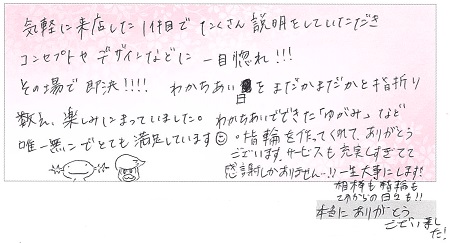 気軽に来店した1件目でたくさん説明をしていただき
コンセプトやデザインなどに一目惚れ!!!
その場で即決!!!! わかちあい日をまだかまだかと指折り
数え、楽しみにまっていました。わかちあいでできた「ゆがみ」など
唯一無二でとても満足しています☺。指輪を作ってくれて、ありがとう
ございます。サービスも充実しすぎてて
感謝しかありません…!! 一生大事にします!
相棒も指輪も
これからの日々も!!
本当にありがとう
ございまし
た!